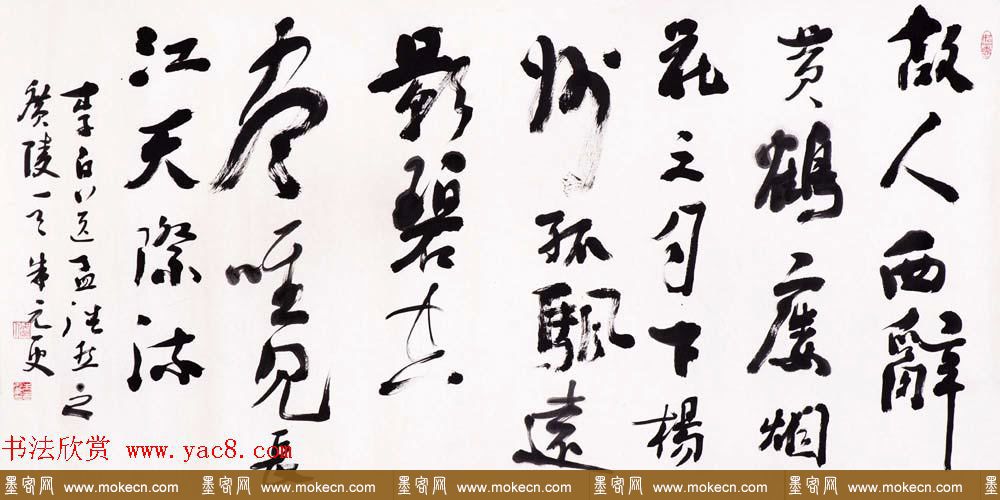 故人西辭
黄鶴廔烟
花三月下楊
州孤颿遠
影碧空
盡唯見長
江天際流
李白送孟浩然之
廣陵一首 朱元更
书法欣赏 www.yac8.com
墨客网 www.mokecn.com 墨客网 www.mokecn.com 墨客网 www.mokecn.com 墨客网 www.mokecn.com 墨客网 www.mokecn.com